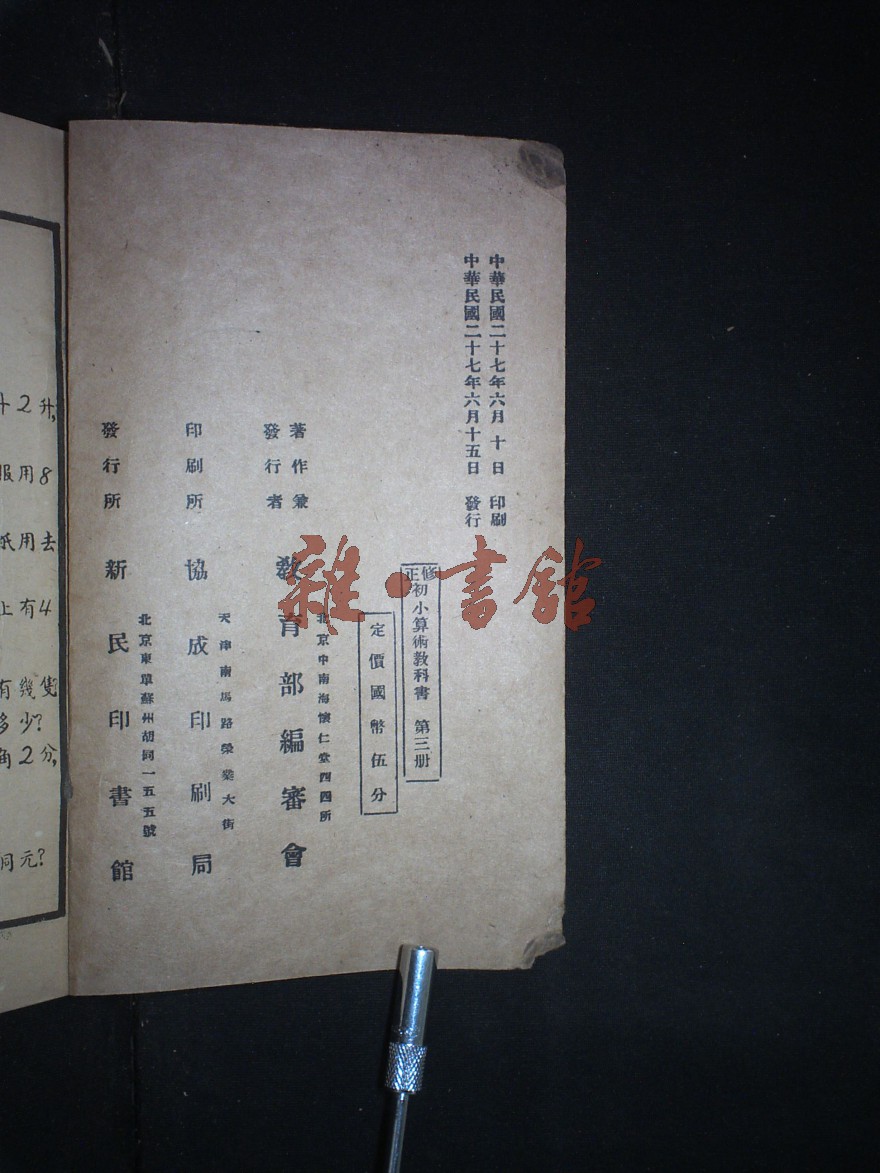 中華民國二十七年六月十日 印刷
中華民國二十七年六月十五日 發行
修正初小算術教科書 第三册
定價國幣伍分
著作兼發行者 教育部編審會
北京中南海懷仁堂四四所
印刷所 協成印刷局
天津南馬路榮業大街
發行所 新民印書館
北京東單蘇州胡同一五五號
2升,
服用8
用去
上有4
有幾隻
多少?
角2分,
同元?
雜·書館